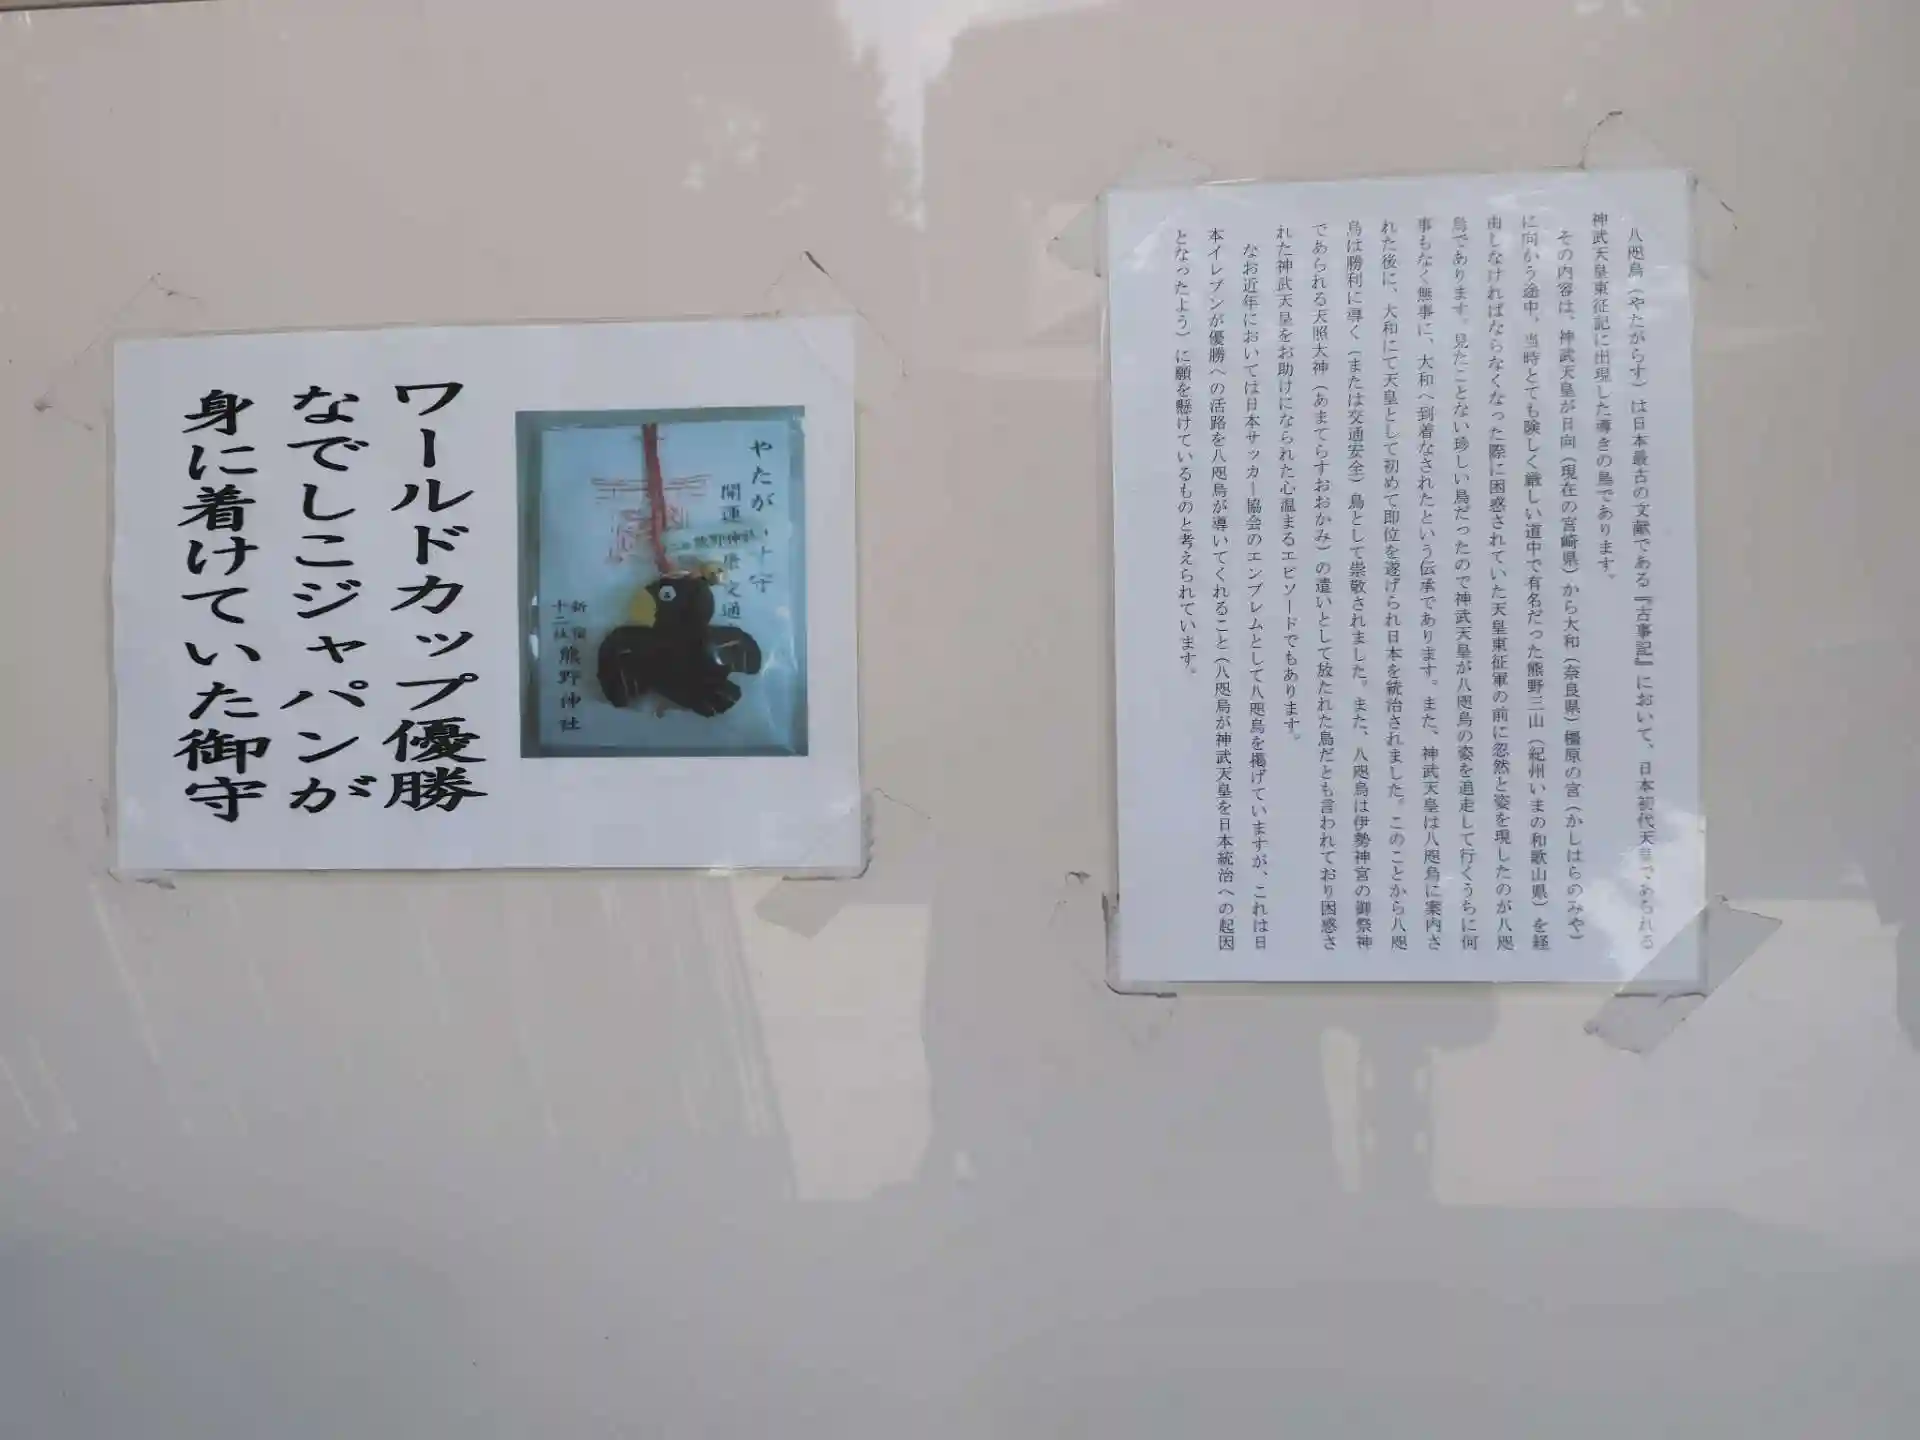 八咫烏(やたがらす)は日本最古の文献である『古事記』において、日本初代天皇であられる
神武天皇東征記に出現した導きの鳥であります。
その内容は、神武天皇が日向(現在の宮崎県)から大和(奈良県)橿原の宮(かしはらのみや)
に向かう途中、当時とても険しく厳しい道中で有名だった熊野三山(紀州いまの和歌山県)を経
由しなければならなくなった際に困惑されていた天皇東征軍の前に忽然と姿を現したのが八咫
烏であります。見たことない珍しい鳥だったので神武天皇が八咫烏の姿を追走して行くうちに何
事もなく無事に、大和へ到着なされたという伝承であります。また、神武天皇は八咫烏に案内さ
れた後に、大和にて天皇として初めて即位を遂げられ日本を統治されました。このことから八咫
烏は勝利に導く(または交通安全)鳥として崇敬されました。また、八咫烏は伊勢神宮の御祭神
であられる天照大神(あまてらすおおかみ)の遣いとして放たれた鳥だとも言われており困惑さ
れた神武天皇をお助けになられた心温まるエピソードでもあります。
なお近年においては日本サッカー協会のエンブレムとして八咫烏を掲げていますが、これは日
本イレブンが優勝への活路を八咫烏が導いてくれること(八咫烏が神武天皇を日本統治への起因
となったよう)に願を懸けているものと考えられています。
やたがらす守
開運 交通
熊野神社
新宿
十二社
熊野神社
ワールドカップ優勝
なでしこジャパンが
身に着けていた御守